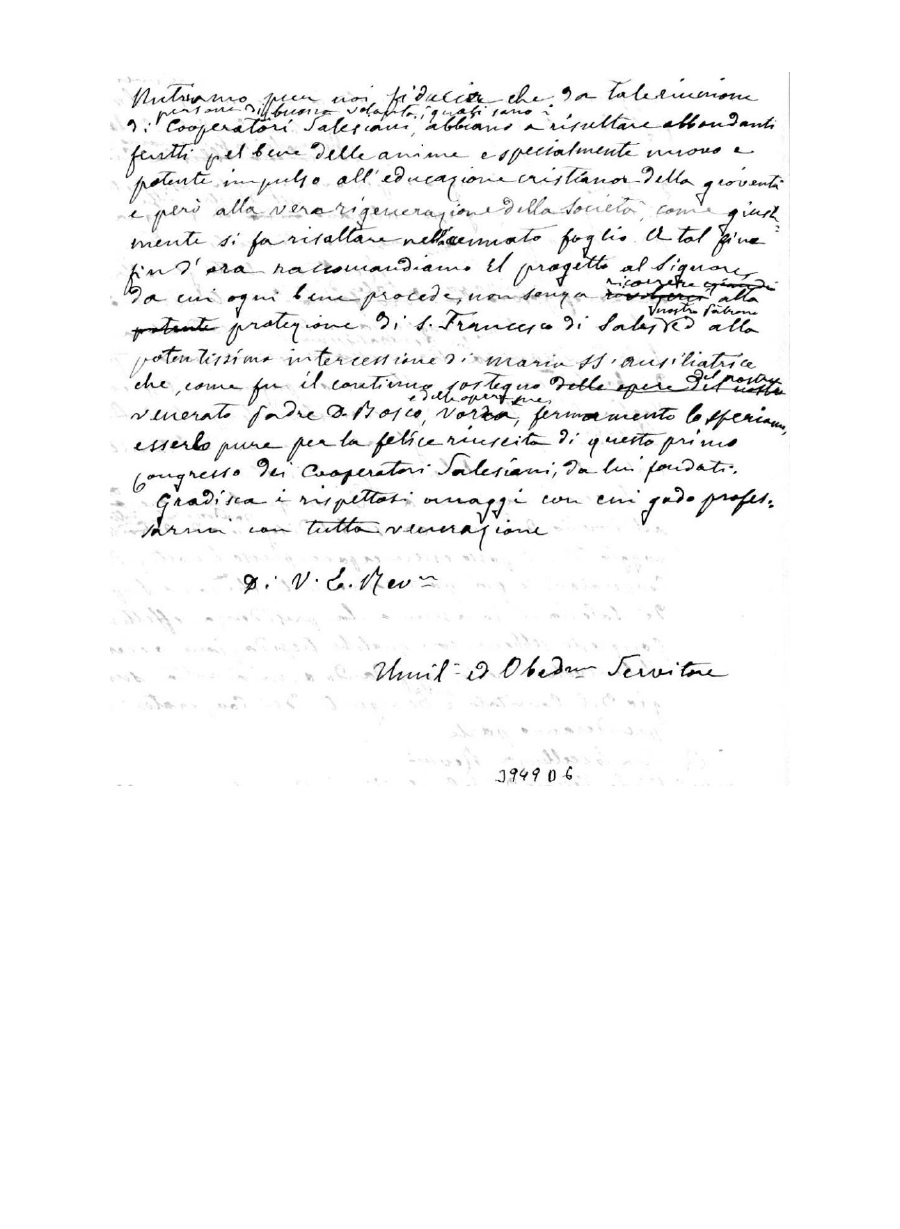 Nutriamo pur noi fiducia che da tale riunione
persone di buona volontà, quali sono i
di Cooperatori Salesiani, abbiano a risultare abbondanti
frutti pel bene delle anime e specialmente nuovo e
potente impulso all'educazione cristiana della gioventù
e però alla vera rigenerazione della Società, come giusta-
mente si fa risaltare nell'accennato foglio. A tal fine
fin d'ora raccomandiamo il progetto al Signore,
da cui ogni bene procede, non senza ricorrere alla
nostro Patrono
potente protezione di S. Francesco di Sales ed alla
potentissima intercessione di Maria SS. Ausiliatrice
che, come fu il continuo sostegno delle opere del nostro
del nostro
venerato Padre D. Bosco, e delle opere sue, vorrà, fermamente lo speriamo,
esserlo pure per la felice riuscita di questo primo
Congresso dei Cooperatori Salesiani, da lui fondati.
Gradisca i rispettosi omaggi con cui godo profes-
sarmi con tutta venerazione
D. V. E. Rev.ma
Umil. ed Obed.mo Servitore
3949 D 6